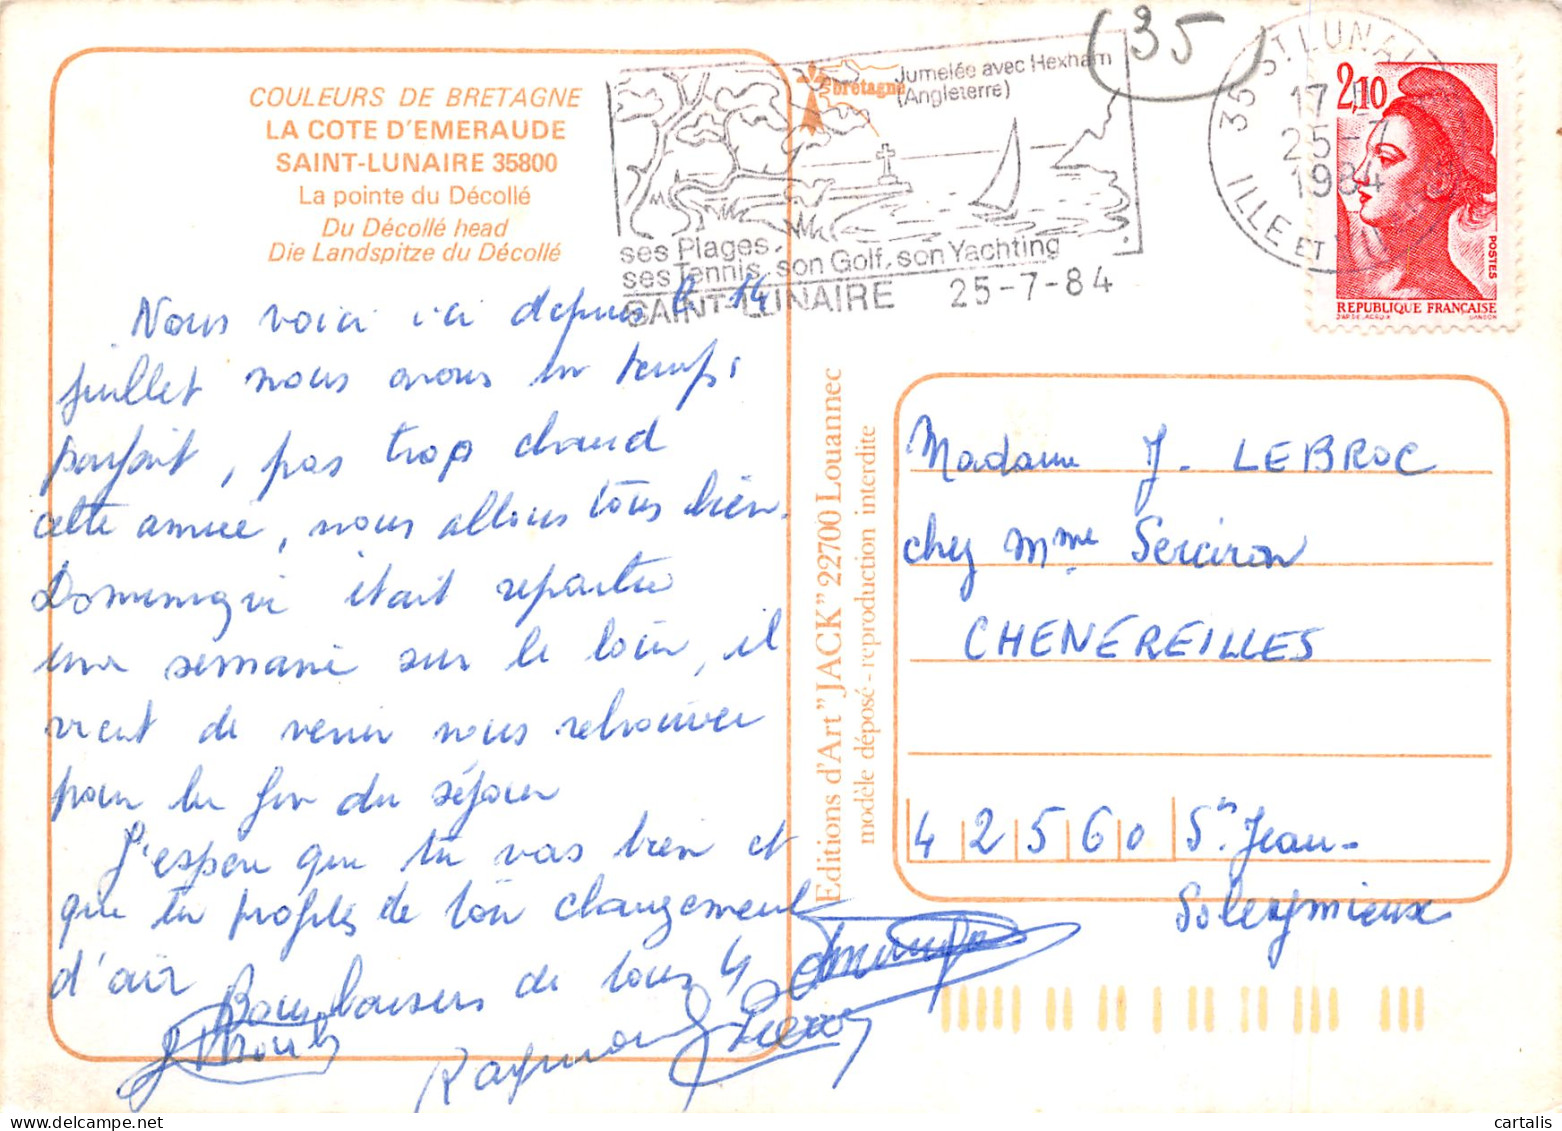 COULEURS DE BRETAGNE
LA COTE D'EMERAUDE
SAINT-LUNAIRE 35800
La pointe du Décollé
Du Décollé head
Die Landspitze du Décollé
bretagne
Jumelée avec Hexham
(Angleterre)
ses Plages,
ses Tennis, son Golf, son Yachting
SAINT-LUNAIRE 25-7-84
(35)
35 ST. LUNAI
17
25-7
1984
ILLE ET
2,10
POSTES
REPUBLIQUE FRANÇAISE
Nous voici ici depuis le 14
juillet nous avons un temps
parfait, pas trop chaud
cette année, nous allons tous bien.
Dominique était repartie
une semaine sur le loin, il
vient de venir nous retrouver
pour la fin du séjour
J'espère que tu vas bien et
que tu profites de ton changement
d'air
Bons baisers de tous 4
Raymond Pierre
Editions d'Art "JACK" 22700 Louannec
modèle déposé - reproduction interdite
Madame J. LEBROC
chez Mme Serciron
CHENEREILLES
42560 St Jean-
Soleymieux